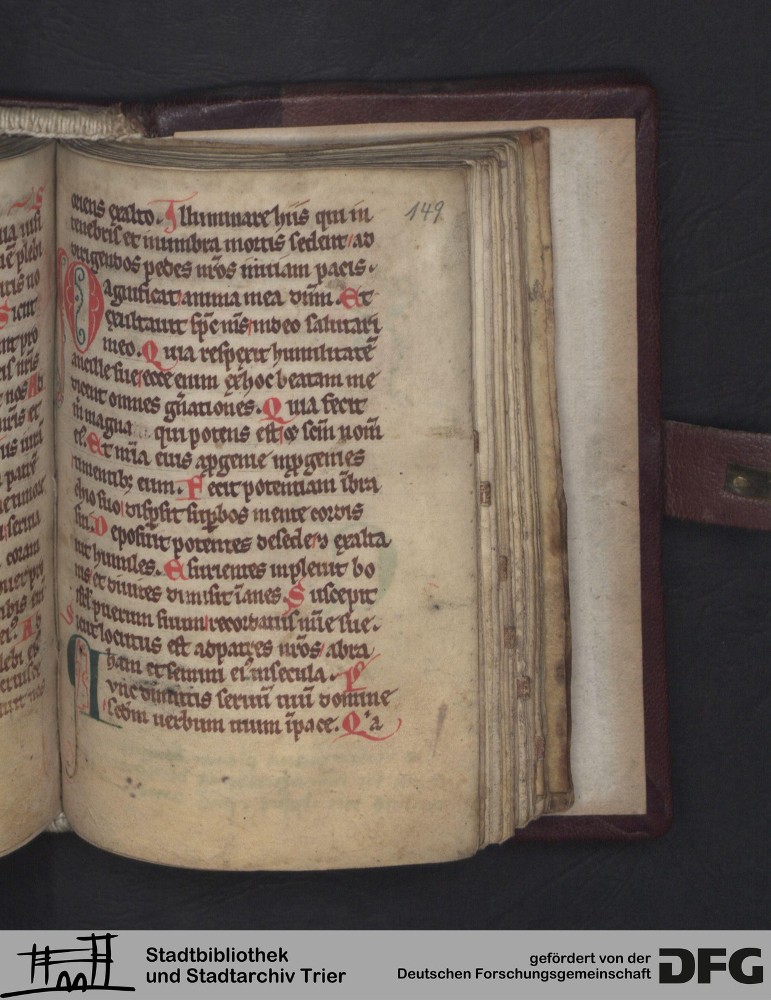 oriens exalto. Illuminare hiis qui in
tenebris et inumbra mortis sedent ad
dirigendos pedes nr̄os inuiam pacis.
Magnificat anima mea dn̄m. Et
exultauit sp̄c m̄s indeo salutari
meo. Quia respexit humilitatē
ancille sue ecce enim exhoc beatam me
dicent omnes gn̄ationes. Quia fecit
m̄ magna qui potens est ⁊ scm̄ nom̄
ei᷒. Et mīa eius apgenie inpgenies
timentib; eum. Fecit potentiam ībra
chio suo dispsit supbos mente cordis
sui. Deposuit potentes desede ⁊ exalta
uit humiles. Esurientes inpleuit bo
nis et diuites dimisit īanes. Suscepit
isrl̄ puerum suum recordatus mīe sue.
Sicut locutus est adpatres nr̄os abra
ham et semini ei᷒ insecula. P
Nunc dimittis seruū tuū domine
scdm̄ uerbum tuum īpace. Qͥa
149
Stadtbibliothek
und Stadtarchiv Trier
gefördert von der
Deutschen Forschungsgemeinschaft
DFG